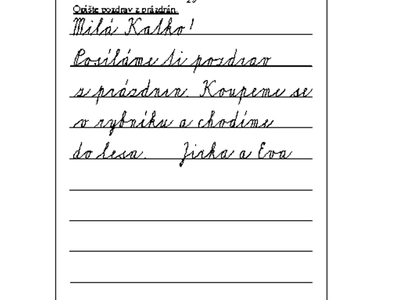 Opište pozdrav z prázdnin.
Milá Katko!
Posíláme ti pozdrav
z prázdnin. Koupeme se
v rybníku a chodíme
do lesa. Jirka a Eva